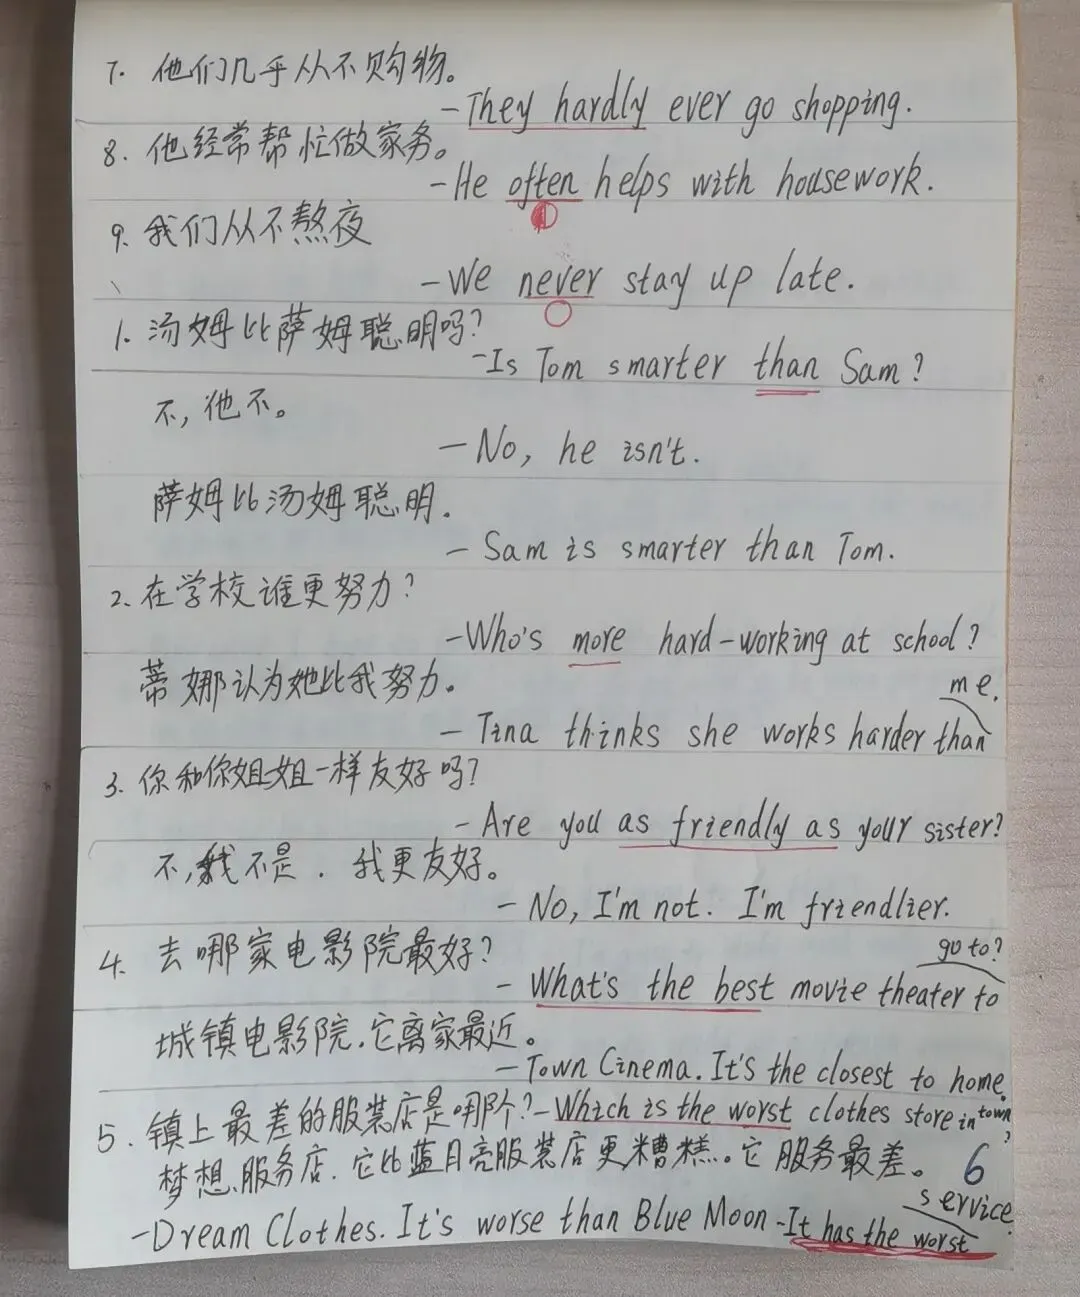 7. 他们几乎从不购物。
-They hardly ever go shopping.
8. 他经常帮忙做家务。
-He often helps with housework.
9. 我们从不熬夜
-We never stay up late.
1. 汤姆比萨姆聪明吗?
-Is Tom smarter than Sam?
不,他不。
-No, he isn't.
萨姆比汤姆聪明.
- Sam is smarter than Tom.
2. 在学校谁更努力?
-Who's more hard-working at school?
蒂娜认为她比我努力。
- Tina thinks she works harder than
me.
3. 你和你姐姐一样友好吗?
- Are you as friendly as your sister?
不,我不是. 我更友好。
- No, I'm not. I'm friendlier.
4. 去哪家电影院最好?
- What's the best movie theater to
go to?
城镇电影院.它离家最近。
- Town Cinema. It's the closest to home.
5. 镇上最差的服装店是哪个?-Which is the worst clothes store in town?
梦想服务店. 它比蓝月亮服装店更糟糕。它服务最差。 6
-Dream Clothes. It's worse than Blue Moon -It has the worst
service.